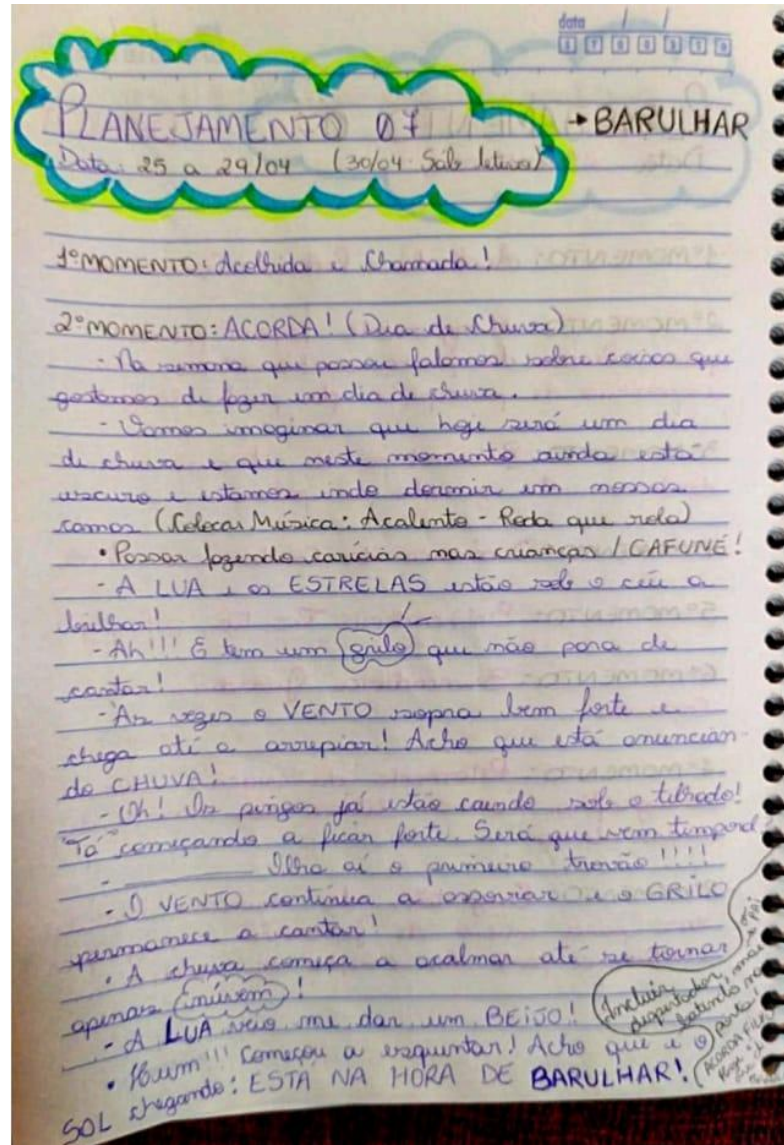 data / /
D T Q Q S S D
PLANEJAMENTO 07 → BARULHAR
Data: 25 a 29/04 (30/04 Sáb letivo)
1º MOMENTO: Acolhida e Chamada!
2º MOMENTO: ACORDA! (Dia de Chuva)
- Na semana que passou falamos sobre coisas que
gostamos de fazer em dia de chuva.
- Vamos imaginar que hoje será um dia
de chuva e que neste momento ainda está
escuro e estamos indo dormir em nossas
camas (Colocar Música: Acalento - Roda que rola)
• Passar fazendo carícias nas crianças / CAFUNÉ!
- A LUA e as ESTRELAS estão sob o céu a
brilhar!
- Ah!!! E tem um grilo que não para de
cantar!
- As vezes o VENTO sopra bem forte e
chega até a arrepiar! Acho que está anuncian-
do CHUVA!
- Oh! Os pingos já estão caindo sob o telhado!
"Tá" começando a ficar forte. Será que vem temporal
- Olha aí o primeiro trovão!!!!
- O VENTO continua a assoviar e o GRILO
permanece a cantar!
• A chuva começa a acalmar até se tornar
apenas nuvem!
- A LUA veio me dar um BEIJO!
• Hum!!! Começou a esquentar! Acho que é o
SOL chegando: ESTÁ NA HORA DE BARULHAR!
Incluir
despertador, mãe ou pai
batendo na
porta:
ACORDA